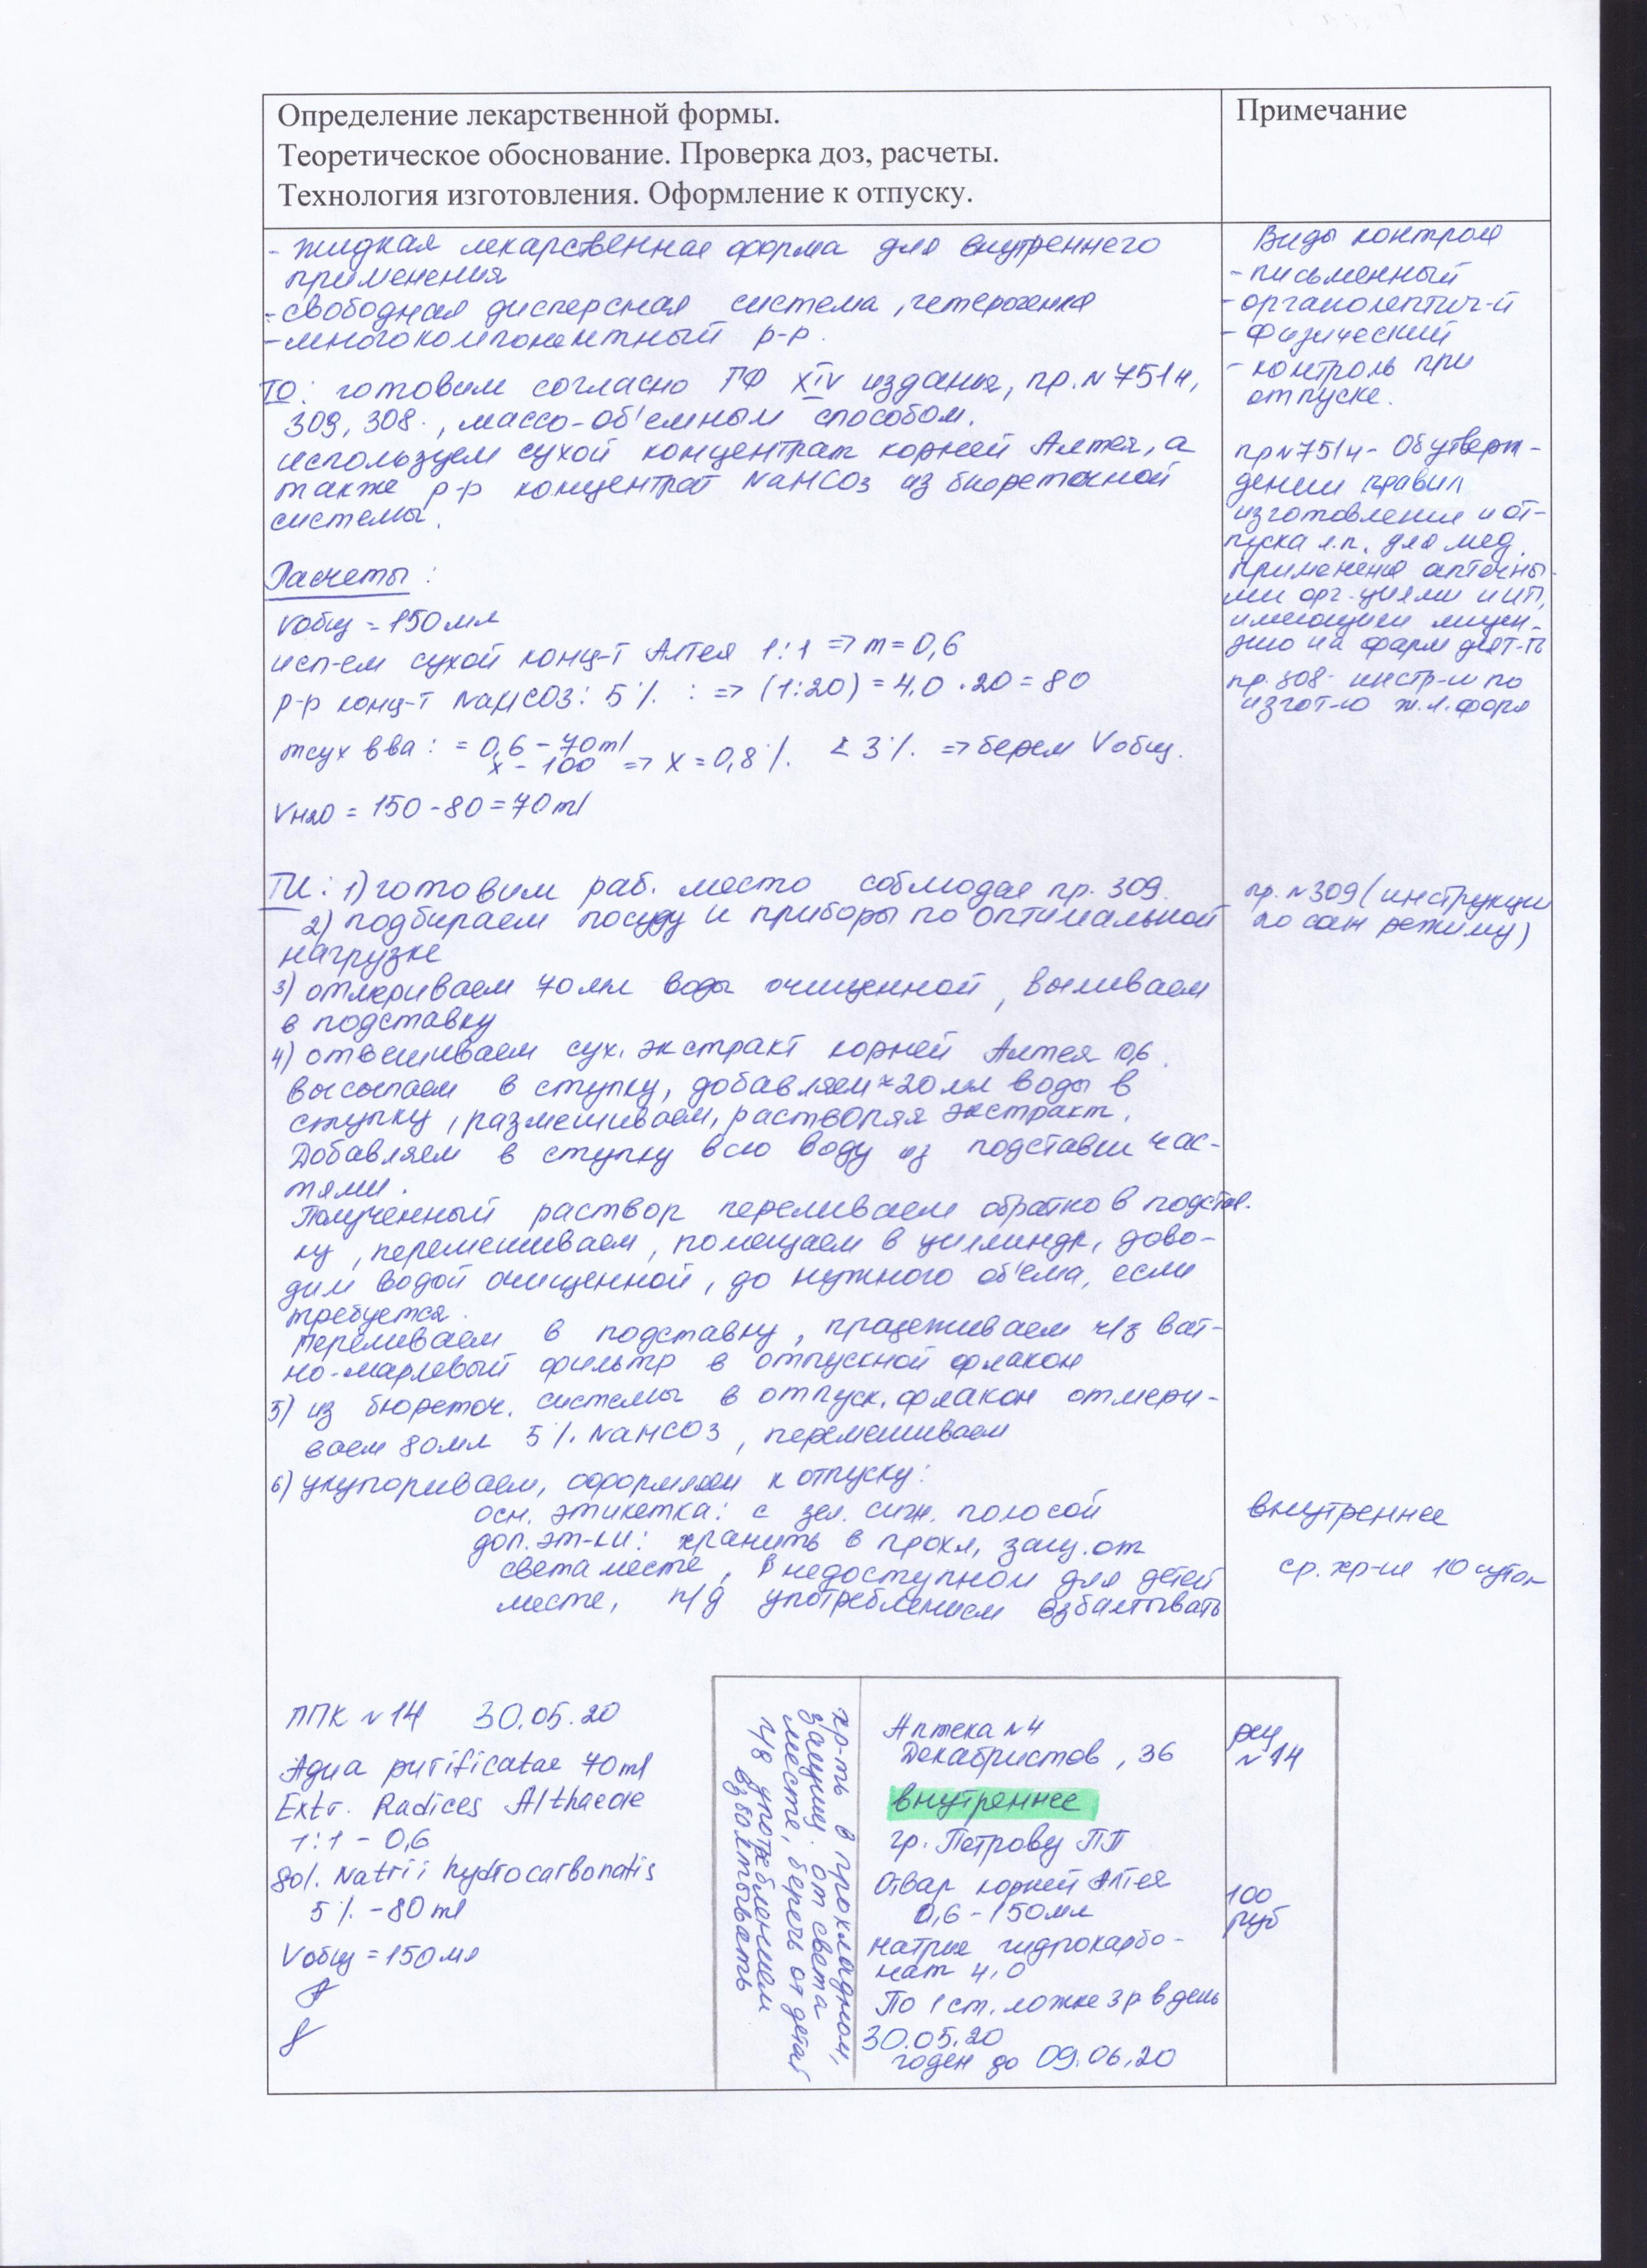 Определение лекарственной формы.
Теоретическое обоснование. Проверка доз, расчеты.
Технология изготовления. Оформление к отпуску.
Примечание
- жидкая лекарственная форма для внутреннего
применения
- свободная дисперсная система, гетерогенная
- многокомпонентный р-р.
ТО: готовим согласно ГФ XIV издания, пр. №751н,
309, 308., массо-об'емным способом.
используем сухой концентрат корней Алтея, а
также р-р концентрат NaHCO3 из бюреточной
системы.
Расчеты:
Vобщ = 150 мл
исп-ем сухой конц-т Алтея 1:1 => m = 0,6
р-р конц-т NaHCO3: 5% : => (1:20) = 4,0 · 20 = 80
mсух вва : = 0,6 - 70 ml
x - 100 => x = 0,8% < 3% => берем Vобщ.
VH2O = 150 - 80 = 70 ml
ТИ: 1) готовим раб. место соблюдая пр. 309.
2) подбираем посуду и приборы по оптимальной
нагрузке
3) отмериваем 70 мл воды очищенной, выливаем
в подставку
4) отвешиваем сух. экстракт корней Алтея 0,6.
высыпаем в ступку, добавляем ≈20 мл воды в
ступку, размешиваем, растворяя экстракт.
Добавляем в ступку всю воду из подставки час-
тями.
Полученный раствор переливаем обратно в подстав.
ку, перемешиваем, помещаем в цилиндр, дово-
дим водой очищенной, до нужного об'ема, если
требуется.
Переливаем в подставку, процеживаем ч/з ват-
но-марлевый фильтр в отпускной флакон
5) из бюреточ. системы в отпуск. флакон отмери-
ваем 80 мл 5% NaHCO3, перемешиваем
6) укупориваем, оформляем к отпуску:
осн. этикетка: с зел. сигн. полосой
доп. эт-ки: хранить в прохл, защ. от
света месте, в недоступном для детей
месте, п/д употреблением взбалтывать
Виды контроля
- письменный
- органолептич-й
- физический
- контроль при
отпуске.
пр №751н - Об утверж-
дении правил
изготовления и от-
пуска л.п. для мед.
применения аптечны-
ми орг-циями и ИП,
имеющими лицен-
зию на фарм деят-ть
пр. 308 - инстр-и по
изгот-ю ж.л.форм
пр. №309 (инструкции
по сан режиму)
внутреннее
ср. хр-ия 10 суток
ППК №14 30.05.20
Aqua purificatae 70 ml
Extr. Radices Althaeae
1:1 - 0,6
Sol. Natrii hydrocarbonatis
5% - 80 ml
Vобщ = 150 мл
хр-ть в прохладном,
защищ. от света
месте, беречь от детей
п/д употреблением
взбалтывать
Аптека №4
Декабристов, 36
внутреннее
гр. Петрову ПП
Отвар корней Алтея
0,6 - 150 мл
Натрия гидрокарбо-
нат 4,0
По 1 ст. ложке 3 р в день
30.05.20
годен до 09.06.20
рец
№14
100
руб